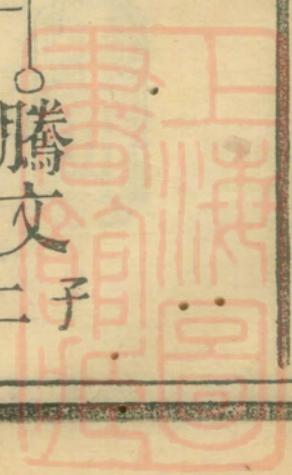 騰文
子二
上海圖
書館藏